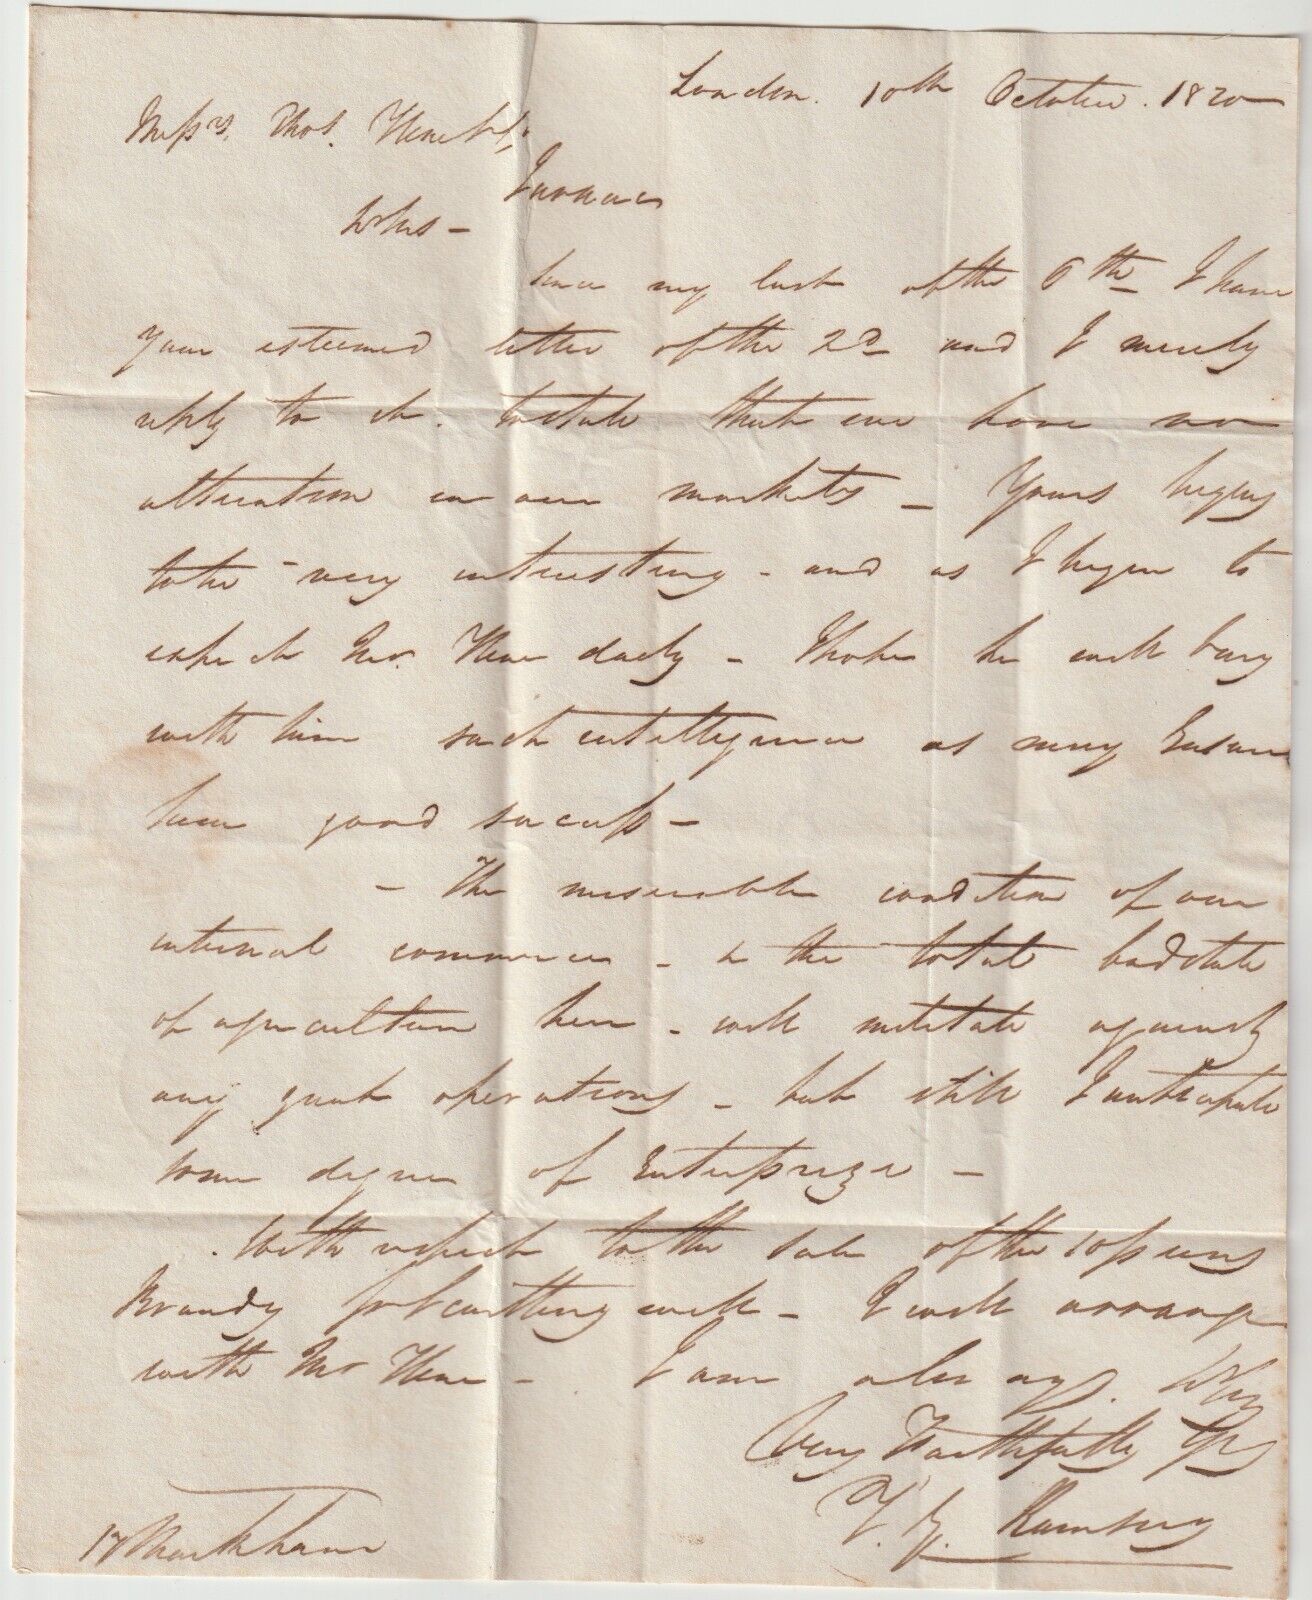 London. 10th October. 1820
Messrs. Thos. Hine & Co.
Jarnac
Sirs -
Since my last of the 6th I have
your esteemed letter of the 2d and I merely
reply to it. to state that we have no
alteration in our markets - Yours begins
to be very interesting - and as I begin to
expect Mr. Hine daily - I hope he will bring
with him such intelligence as may Ensure
him good success -
- The miserable condition of our
internal commerce - & the total bad state
of agriculture here - will militate against
any great operations - but still I anticipate
some degree of Enterprize -
With respect to the sale of the 10 puns
Brandy I will arrange
with Mr Hine - I am always. Sirs
Very Faithfully Yrs
17 Markham